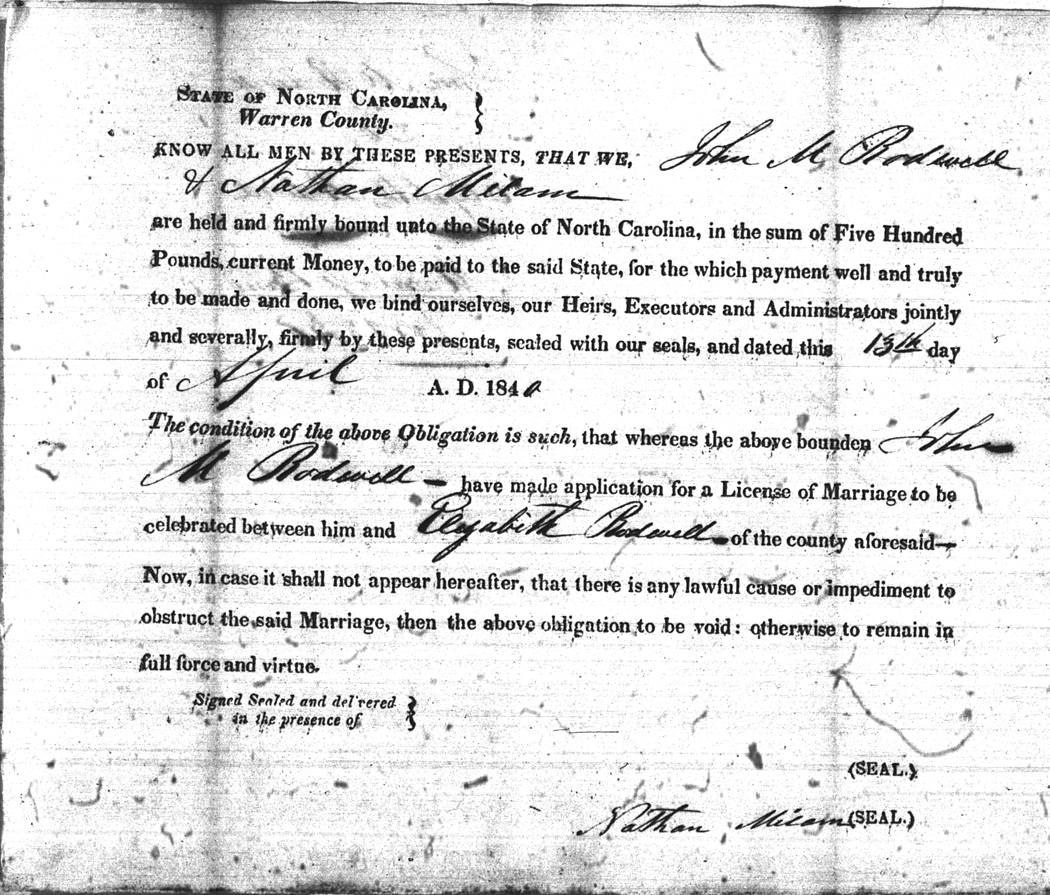 STATE OF NORTH CAROLINA,
Warren County.
KNOW ALL MEN BY THESE PRESENTS, THAT WE, John M Rodwell
& Nathan Milam
are held and firmly bound unto the State of North Carolina, in the sum of Five Hundred
Pounds, current Money, to be paid to the said State, for the which payment well and truly
to be made and done, we bind ourselves, our Heirs, Executors and Administrators jointly
and severally, firmly by these presents, sealed with our seals, and dated this 13th day
of April A. D. 1840
The condition of the above Obligation is such, that whereas the above bounden John
M Rodwell – have made application for a License of Marriage to be
celebrated between him and Elizabeth Rodwell of the county aforesaid—
Now, in case it shall not appear hereafter, that there is any lawful cause or impediment to
obstruct the said Marriage, then the above obligation to be void: otherwise to remain in
full force and virtue.
Signed Sealed and del'vered
in the presence of
(SEAL.)
Nathan Milam (SEAL.)